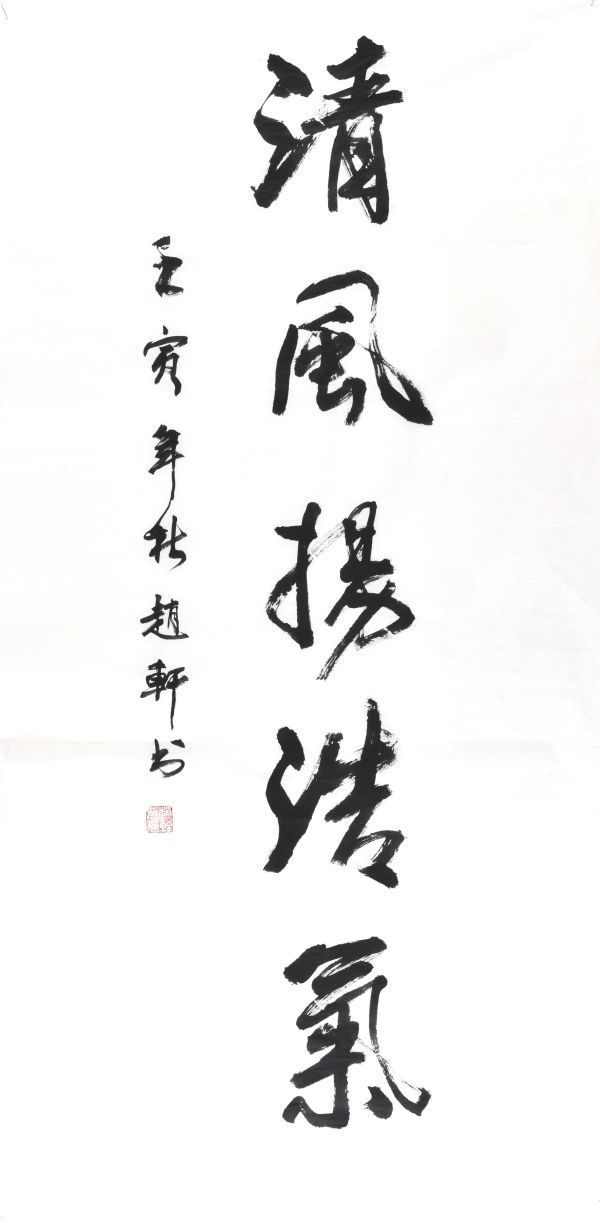 清風揚浩氣
壬寅年秋趙軒书